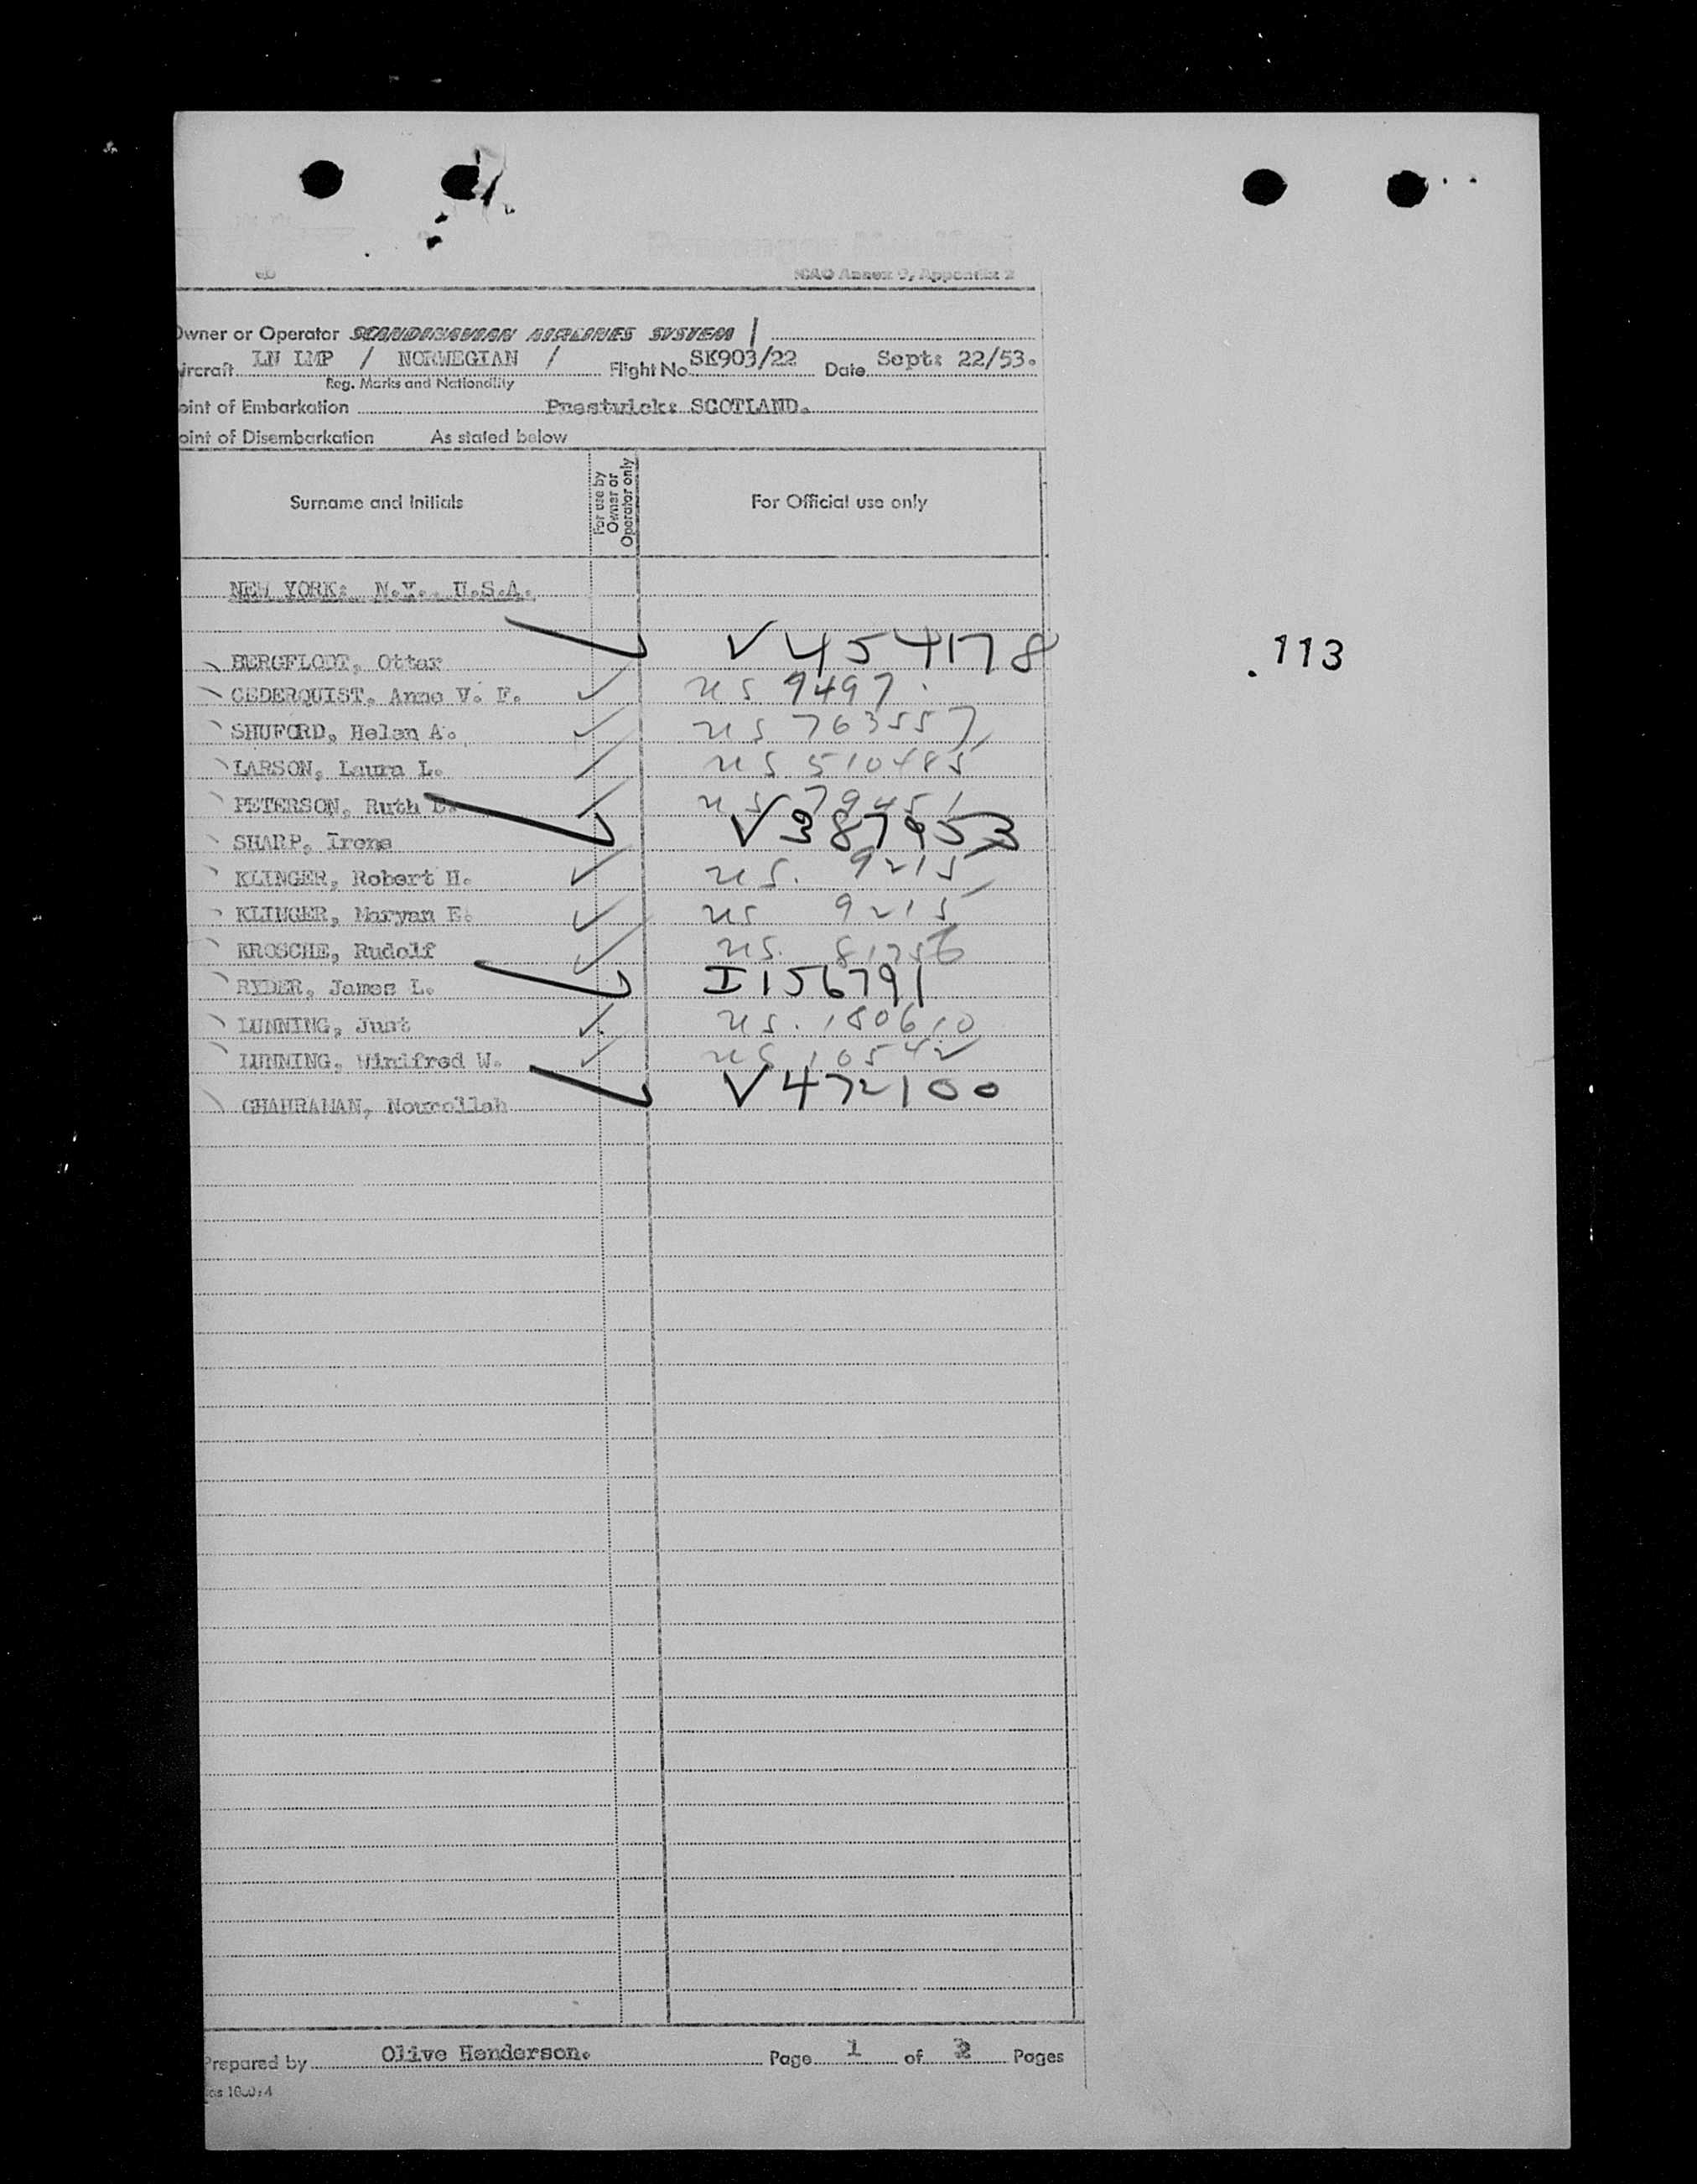 ICAO Annex 9, Appendix 2
Owner or Operator SCANDINAVIAN AIRLINES SYSTEM /
ircraft LN LMP / NORWEGIAN / Flight No SK903/22 Date Sept: 22/53.
Reg. Marks and Nationality
oint of Embarkation Prestwick: SCOTLAND.
oint of Disembarkation As stated below
Surname and Initials For use by Owner or Operator only For Official use only
NEW YORK: N.Y. U.S.A.
BERGFLODT, Ottar V454178
.113
CEDERQUIST, Anne V. F. US 9497
SHUFORD, Helen A. US 763557
LARSON, Laura L. US 510485
PETERSON, Ruth US 79451
SHARP, Irene V387953
KLINGER, Robert H. US. 9215
KLINGER, Maryan E. US 9215
KROSCHE, Rudolf US. 81756
RYDER, James L. I156791
LUNNING, Just US. 180610
LUNNING, Winifred W. US 10542
GHAHRAMAN, Nourollah V472100
Prepared by Olive Henderson. Page 1 of 2 Pages